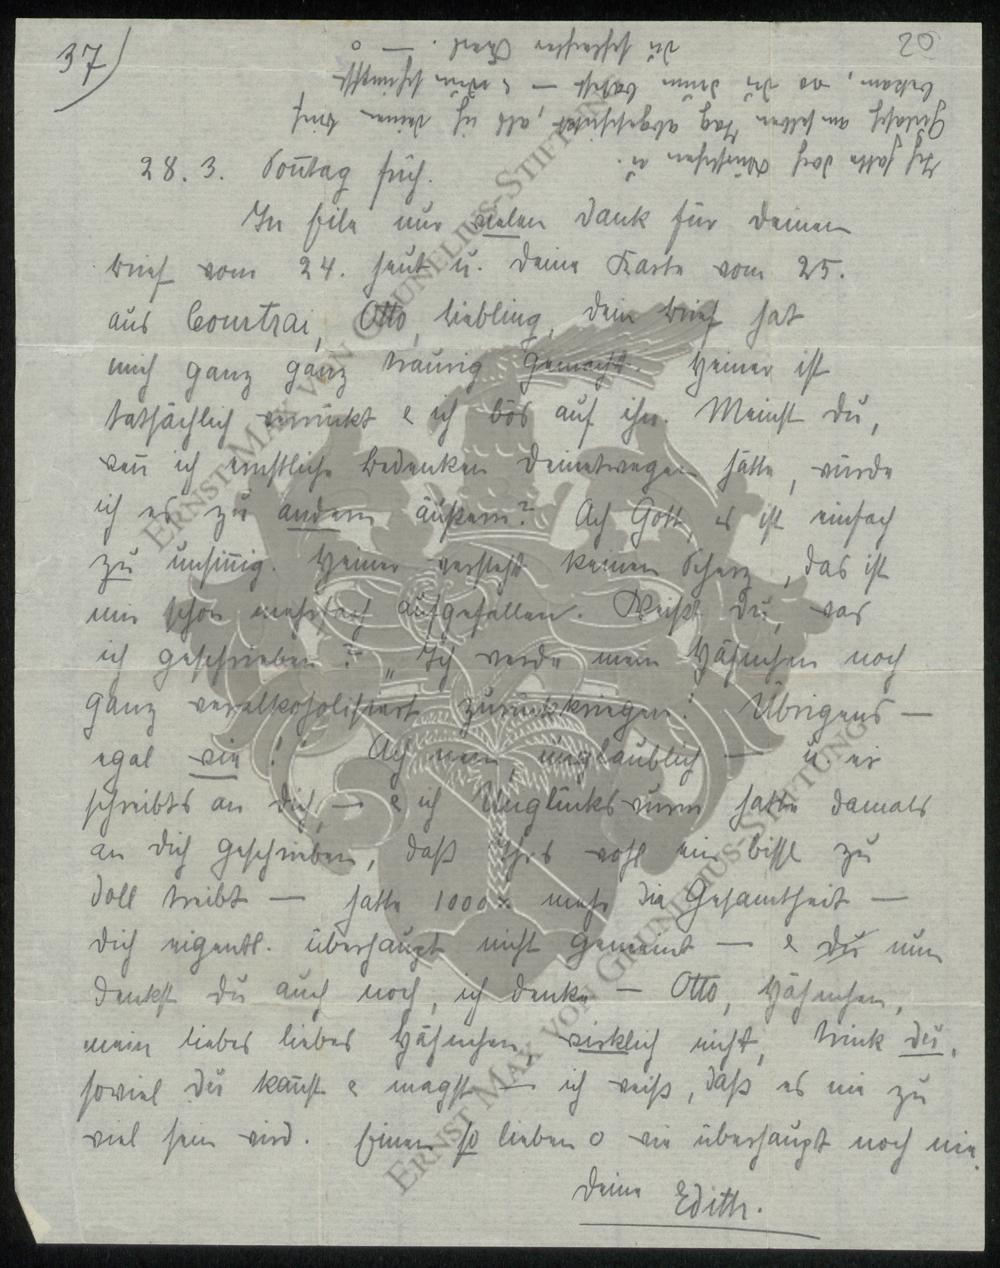 37)
20
28. 3. Sonntag früh.
In Eile nur vielen Dank für Deinen
Brief vom 24. heut u. Deine Karte vom 25.
aus Courtrai, Otto, Liebling, Dein Brief hat
mich ganz ganz traurig gemacht. Heiner ist
tatsächlich verrückt & ich bös auf ihn. Meinst Du,
wenn ich ernstliche Bedenken Deinetwegen hätte, würde
ich es zu andern äußern? Ach Gott, es ist einfach
zu unsinnig. Heiner versteht keinen Scherz, das ist
mir schon mehrfach aufgefallen. Weißt Du, was
ich geschrieben? "Ich werde mein Hähnchen noch
ganz veralkoholisiert zurückkriegen! Übrigens —
egal wie!" Ach nein, unglaublich — u. er
schreibts an Dich, — & ich Unglückswurm hatte damals
an Dich geschrieben, daß Ihrs wohl ein bissl zu
doll treibt — hatte 1000 x mehr die Gesamtheit —
Dich eigentl. überhaupt nicht gemeint — & Du nun
denkst Du auch noch, ich denke — Otto, Hähnchen,
mein liebes liebes Hähnchen, wirklich nicht, trink Du,
soviel Du kannst & magst — ich weiß, daß es nie zu
viel sein wird. Einen so lieben o wie überhaupt noch nie.
Deine Edith.
Ich hatte doch Würstchen u.
Gulasch am selben Tag abgeschickt, als ich Deinen Brief
bekam, wo Du drum batest — & Du schimpfst
Du schlechter Kerl. — o
ERNST-MAX VON GRUNELIUS-STIFTUNG
ERNST MAX VON GRUNELIUS-STIFTUNG